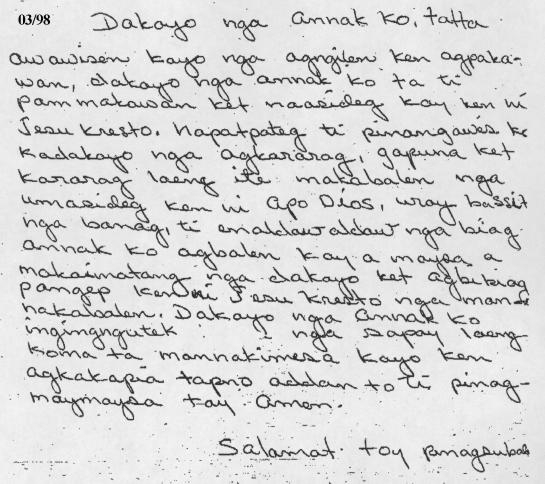 03/98
Dakayo nga annak ko, tatta
awawisen kayo nga agngilen ken agpaka-
wan, dakayo nga annak ko ta ti
pammakawan ket naasideg kay ken ni
Jesu Kresto. Napatpateg ti pinangawis ko
kadakayo nga agkararag, gapuna ket
kararag laeng iti makabalen nga
umasideg ken ni Apo Dios, uray bassit
nga banag, ti enaldaw aldaw nga biag
annak ko agbalen kay a maysa a
makaimatang nga dakayo ket agbibiag
pangep ken ni Jesu Kresto nga
nakabalen. Dakayo nga annak ko
nga sapay laeng
koma ta mannakimesa kayo ken
agkakapia tapno addan to ti pinag-
maymaysa tay Amen.
Salamat toy